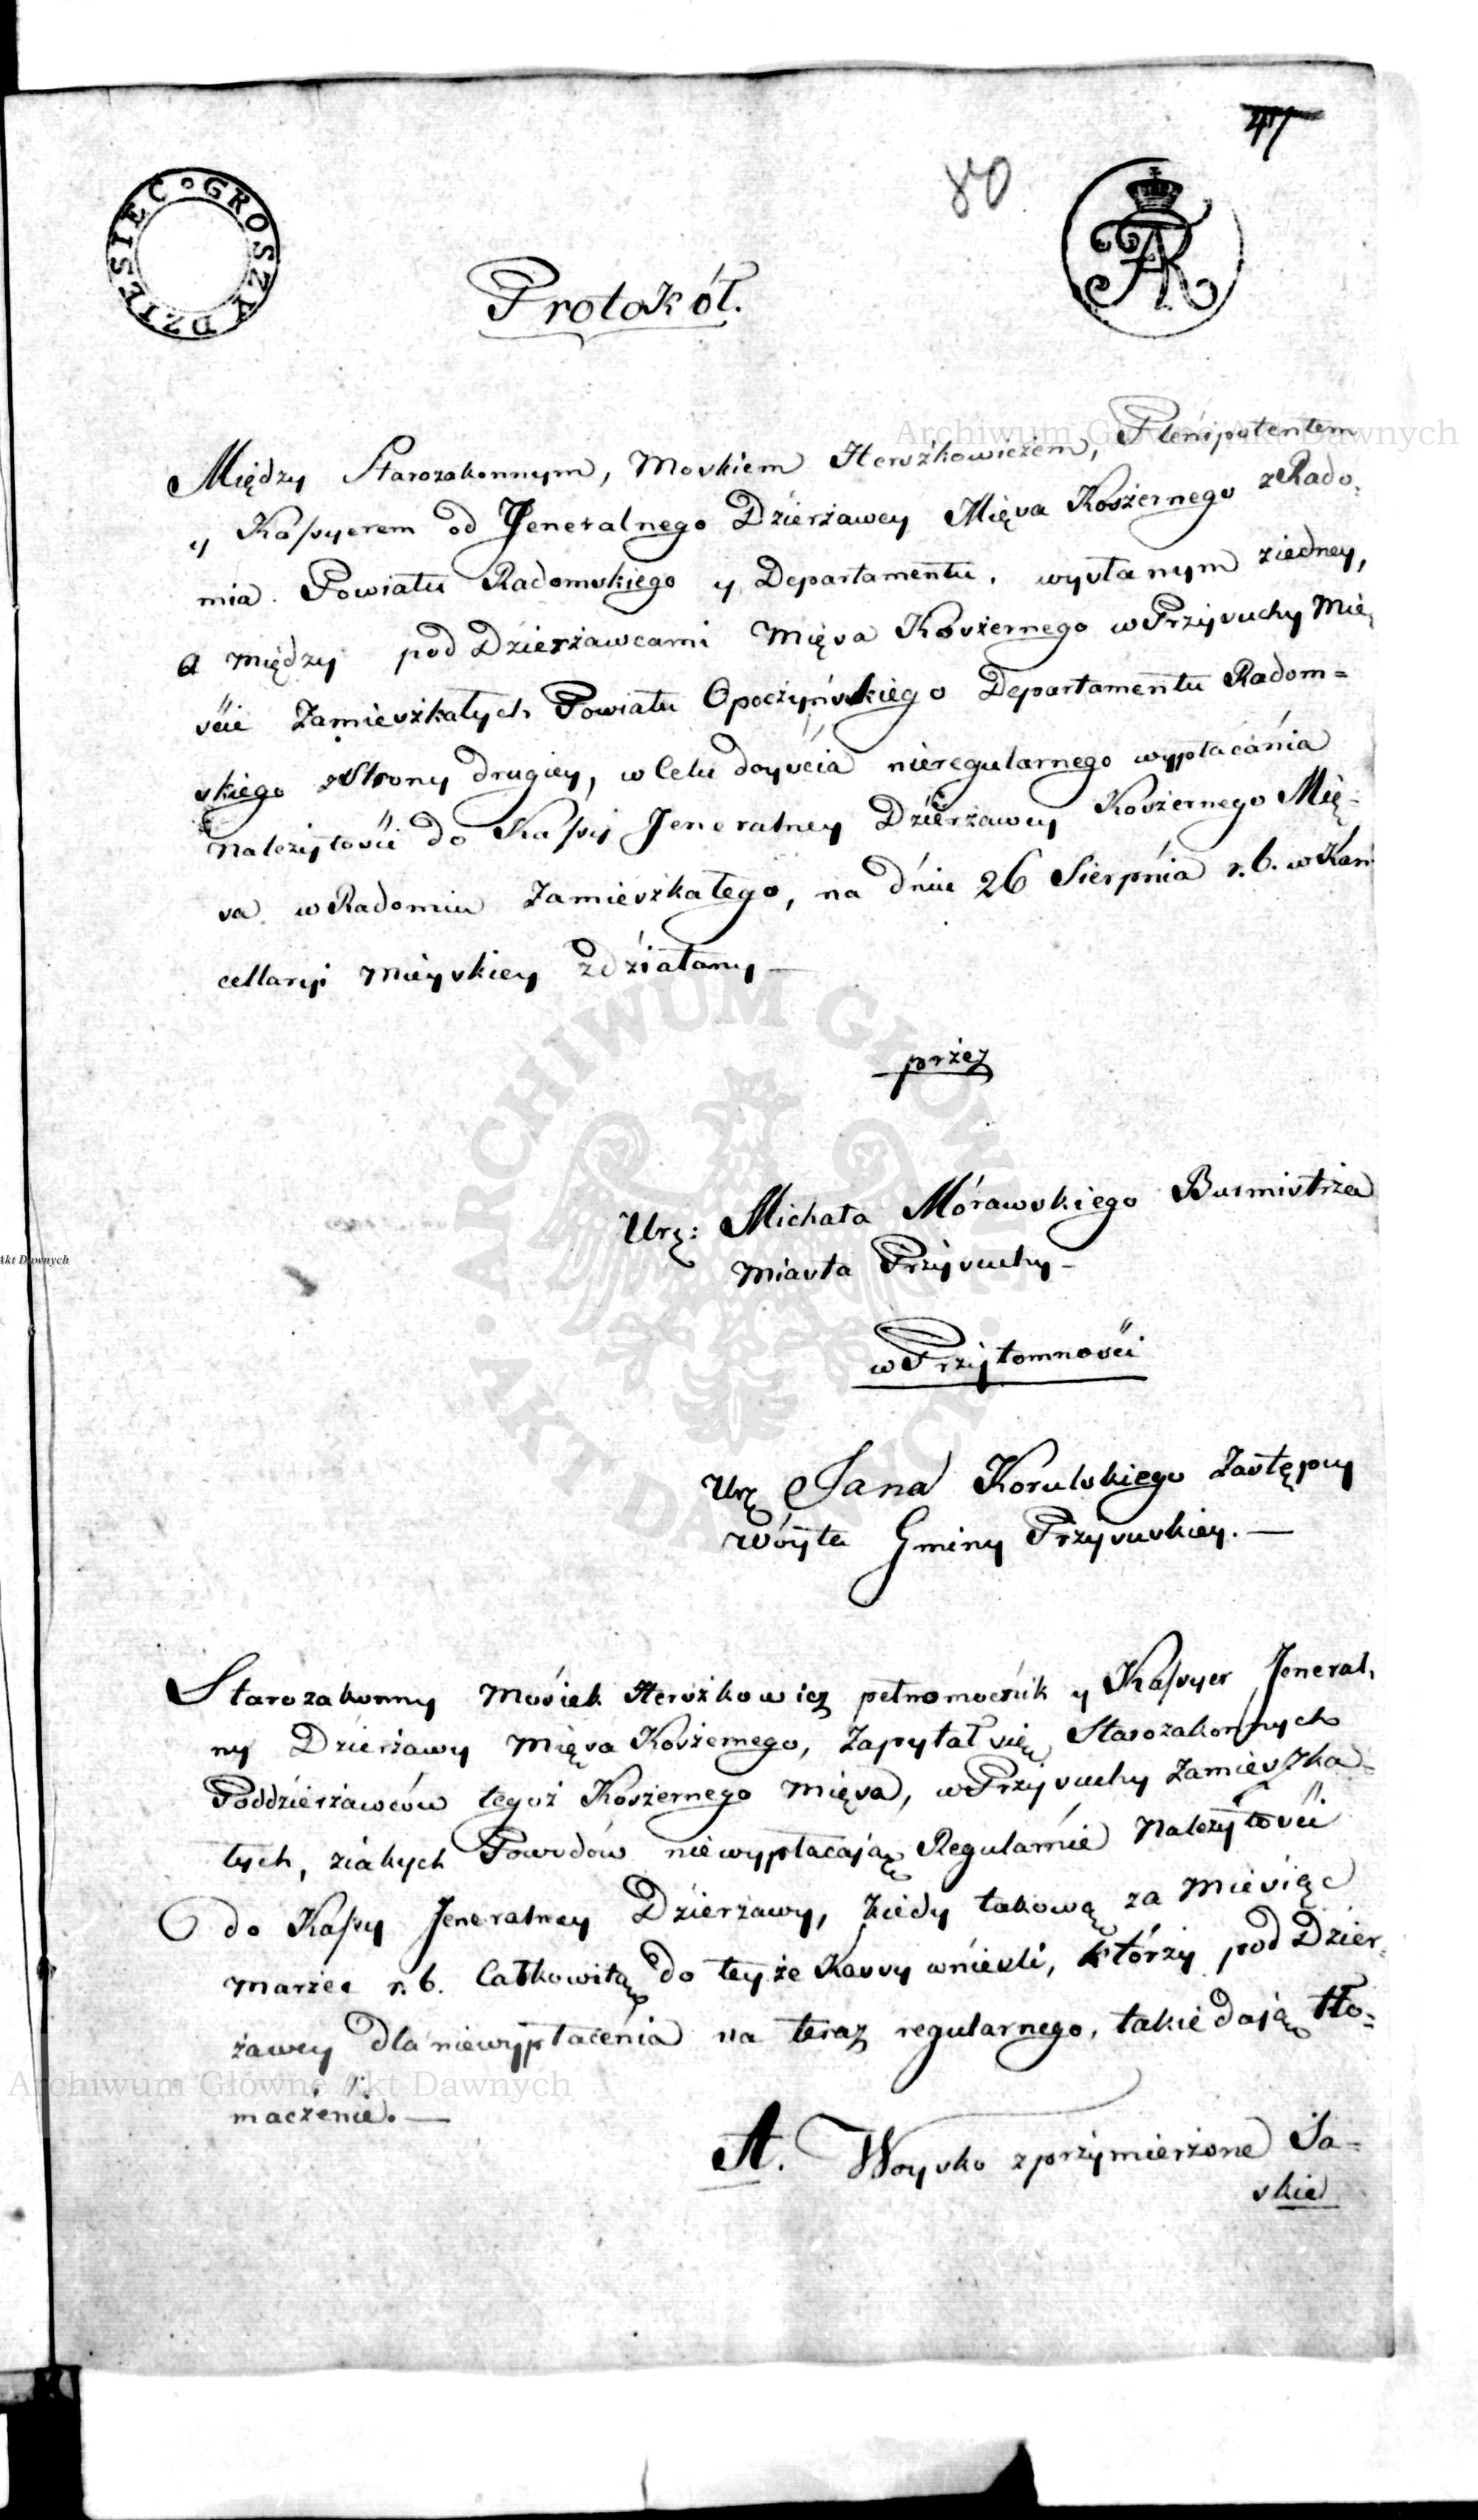 47
80
DZIESIEC GROSZY
FAR
Protokół.
Między Starozakonnym, Moskiem Herszkowiczem, Plenipotentem
y Kassyerem od Jeneralnego Dzierżawcy Mięsa Koszernego z Rado,
mia. Powiatu Radomskiego y Departamentu, wysłanym ziedney,
a między pod Dzierżawcami Mięsa Koszernego w Przysuchy Mie,
ście Zamieszkałych Powiatu Opoczyńskiego Departamentu Radom=
skiego z Strony drugiey, w Celu doyścia nieregularnego wypłacania
należytości do Kassy Jeneralney Dzierżawy Koszernego Mię=
sa w Radomiu Zamieszkałego, na dniu 26 Sierpnia r. b. w Kan
cellaryi Mieyskiey zdziałany —
przez
Urz: Michała Morawskiego Burmistrza
Miasta Przysuchy —
w Przytomności
Urz Jana Korulskiego Zastępcy
Wóyta Gminy Przysuskiey. —
Starozakonny Mosiek Herszkowicz pełnomocnik y Kassyer Jeneral,
ny Dzierżawy Mięsa Koszernego, Zapytał się Starozakonnych
Poddzierżawców tegoż Koszernego Mięsa, w Przysuchy Zamieszka=
łych, ziakych Powodów niewypłacają Regularnie Należytości
do Kassy Jeneralney Dzierżawy, kiedy takową za Miesiąc
Marzec r. b. Całkowitą do teyże Kassy wnieśli, którzy pod Dzier=
żawcy dla niewypłacenia na teraz regularnego, takie dają tło=
maczenie. —
A. Woysko zprzymierzone Sa=
skie
Archiwum Główne Akt Dawnych
Archiwum Główne Akt Dawnych
Akt Dawnych
ARCHIWUM GŁÓWNE AKT DAWNYCH